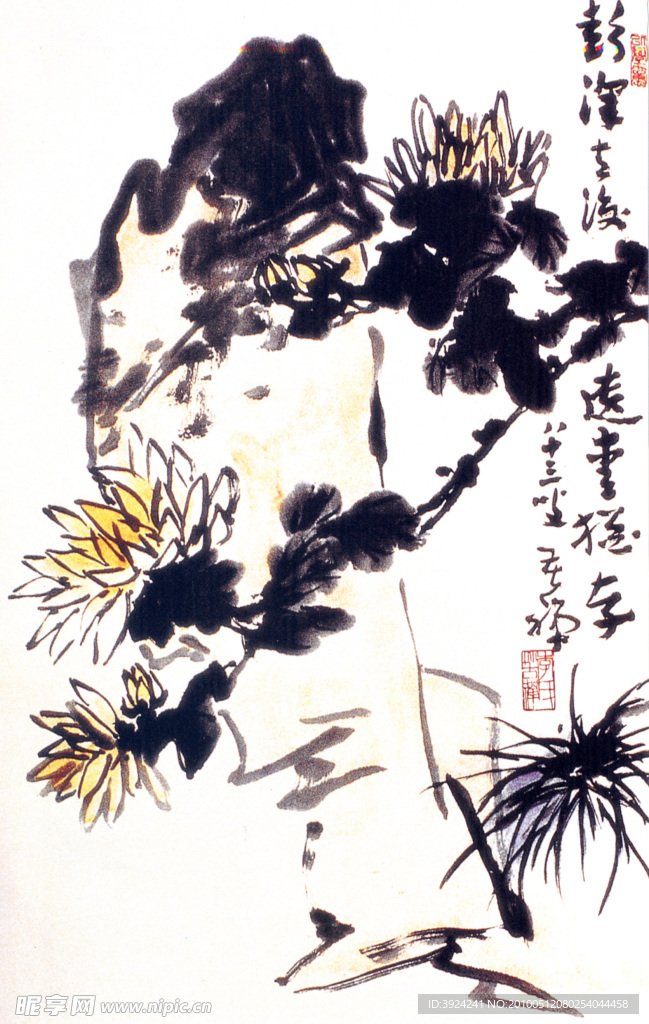 彭澤去後
遠猶存
八十三叟 苦禪
昵享网 www.nipic.cn
ID:3924241 NO:20100512080254044458